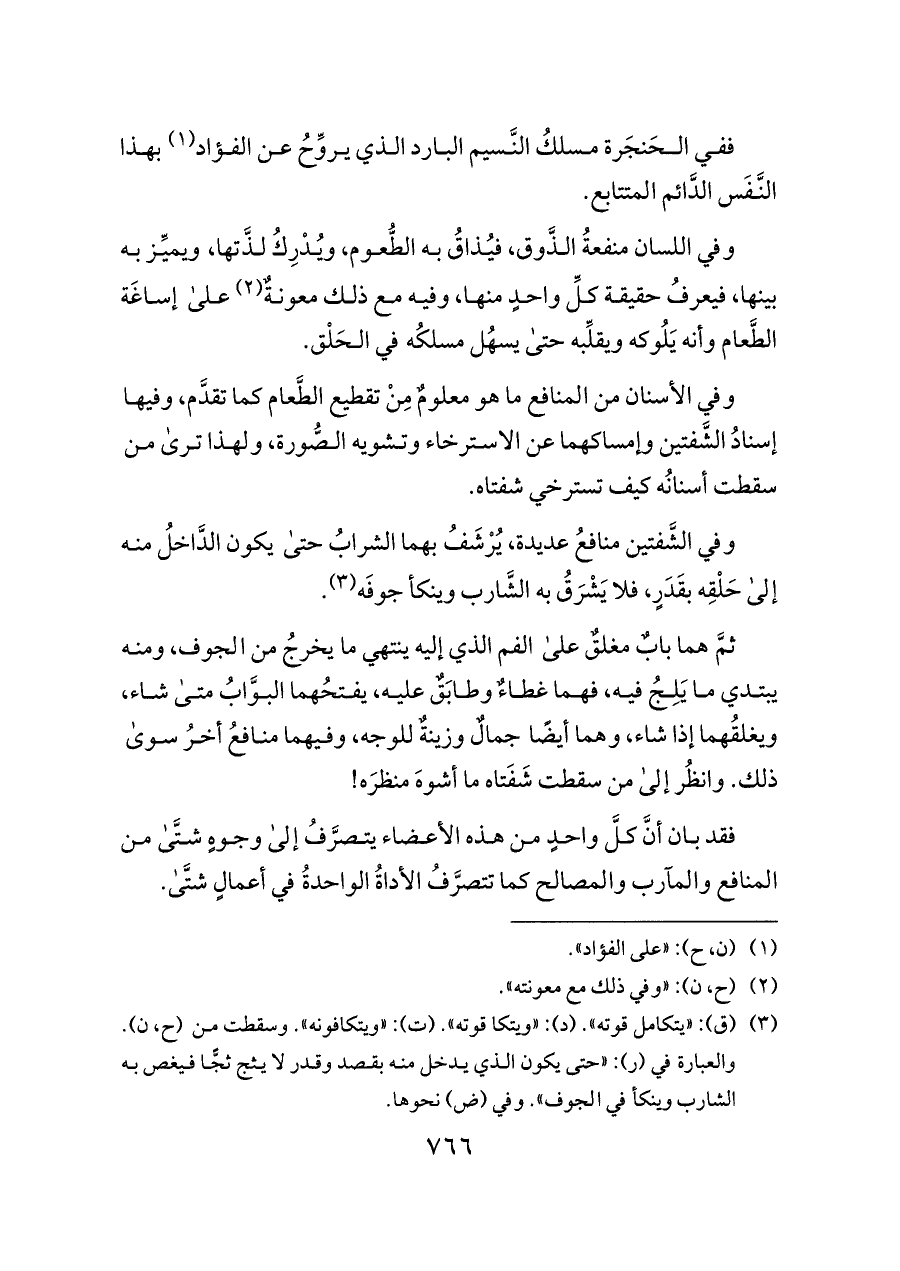 ففي الحَنجَرة مسلكُ النَّسيم البارد الذي يروِّحُ عن الفؤاد(١) بهذا
النَّفَس الدَّائم المتتابع.
وفي اللسان منفعةُ الذَّوق، فيُذاقُ به الطُّعوم، ويُدْرِكُ لذَّتها، ويميِّز به
بينها، فيعرفُ حقيقة كلِّ واحدٍ منها، وفيه مع ذلك معونةٌ(٢) علىٰ إساغَة
الطَّعام وأنه يَلُوكه ويقلِّبه حتىٰ يسهُل مسلكُه في الحَلْق.
وفي الأسنان من المنافع ما هو معلومٌ مِنْ تقطيع الطَّعام كما تقدَّم، وفيها
إسنادُ الشَّفتين وإمساكهما عن الاسترخاء وتشويه الصُّورة، ولهذا ترىٰ من
سقطت أسنانُه كيف تسترخي شفتاه.
وفي الشَّفتين منافعُ عديدة، يُرْشَفُ بهما الشرابُ حتىٰ يكون الدَّاخلُ منه
إلىٰ حَلْقِه بقَدَرٍ، فلا يَشْرَقُ به الشَّارب وينكأ جوفَه(٣).
ثمَّ هما بابٌ مغلقٌ علىٰ الفم الذي إليه ينتهي ما يخرجُ من الجوف، ومنه
يبتدي ما يَلِجُ فيه، فهما غطاءٌ وطابَقٌ عليه، يفتحُهما البوَّابُ متىٰ شاء،
ويغلقُهما إذا شاء، وهما أيضًا جمالٌ وزينةٌ للوجه، وفيهما منافعُ أخرُ سوىٰ
ذلك. وانظُر إلىٰ من سقطت شَفَتاه ما أشوهَ منظرَه!
فقد بان أنَّ كلَّ واحدٍ من هذه الأعضاء يتصرَّفُ إلىٰ وجوهٍ شتَّىٰ من
المنافع والمآرب والمصالح كما تتصرَّفُ الأداةُ الواحدةُ في أعمالٍ شتَّىٰ.
(١) (ن، ح): «على الفؤاد».
(٢) (ح، ن): «وفي ذلك مع معونته».
(٣) (ق): «يتكامل قوته». (د): «ويتكا قوته». (ت): «ويتكافونه». وسقطت من (ح، ن).
والعبارة في (ر): «حتى يكون الذي يدخل منه بقصد وقدر لا يثج ثجًّا فيغص به
الشارب وينكأ في الجوف». وفي (ض) نحوها.
٧٦٦